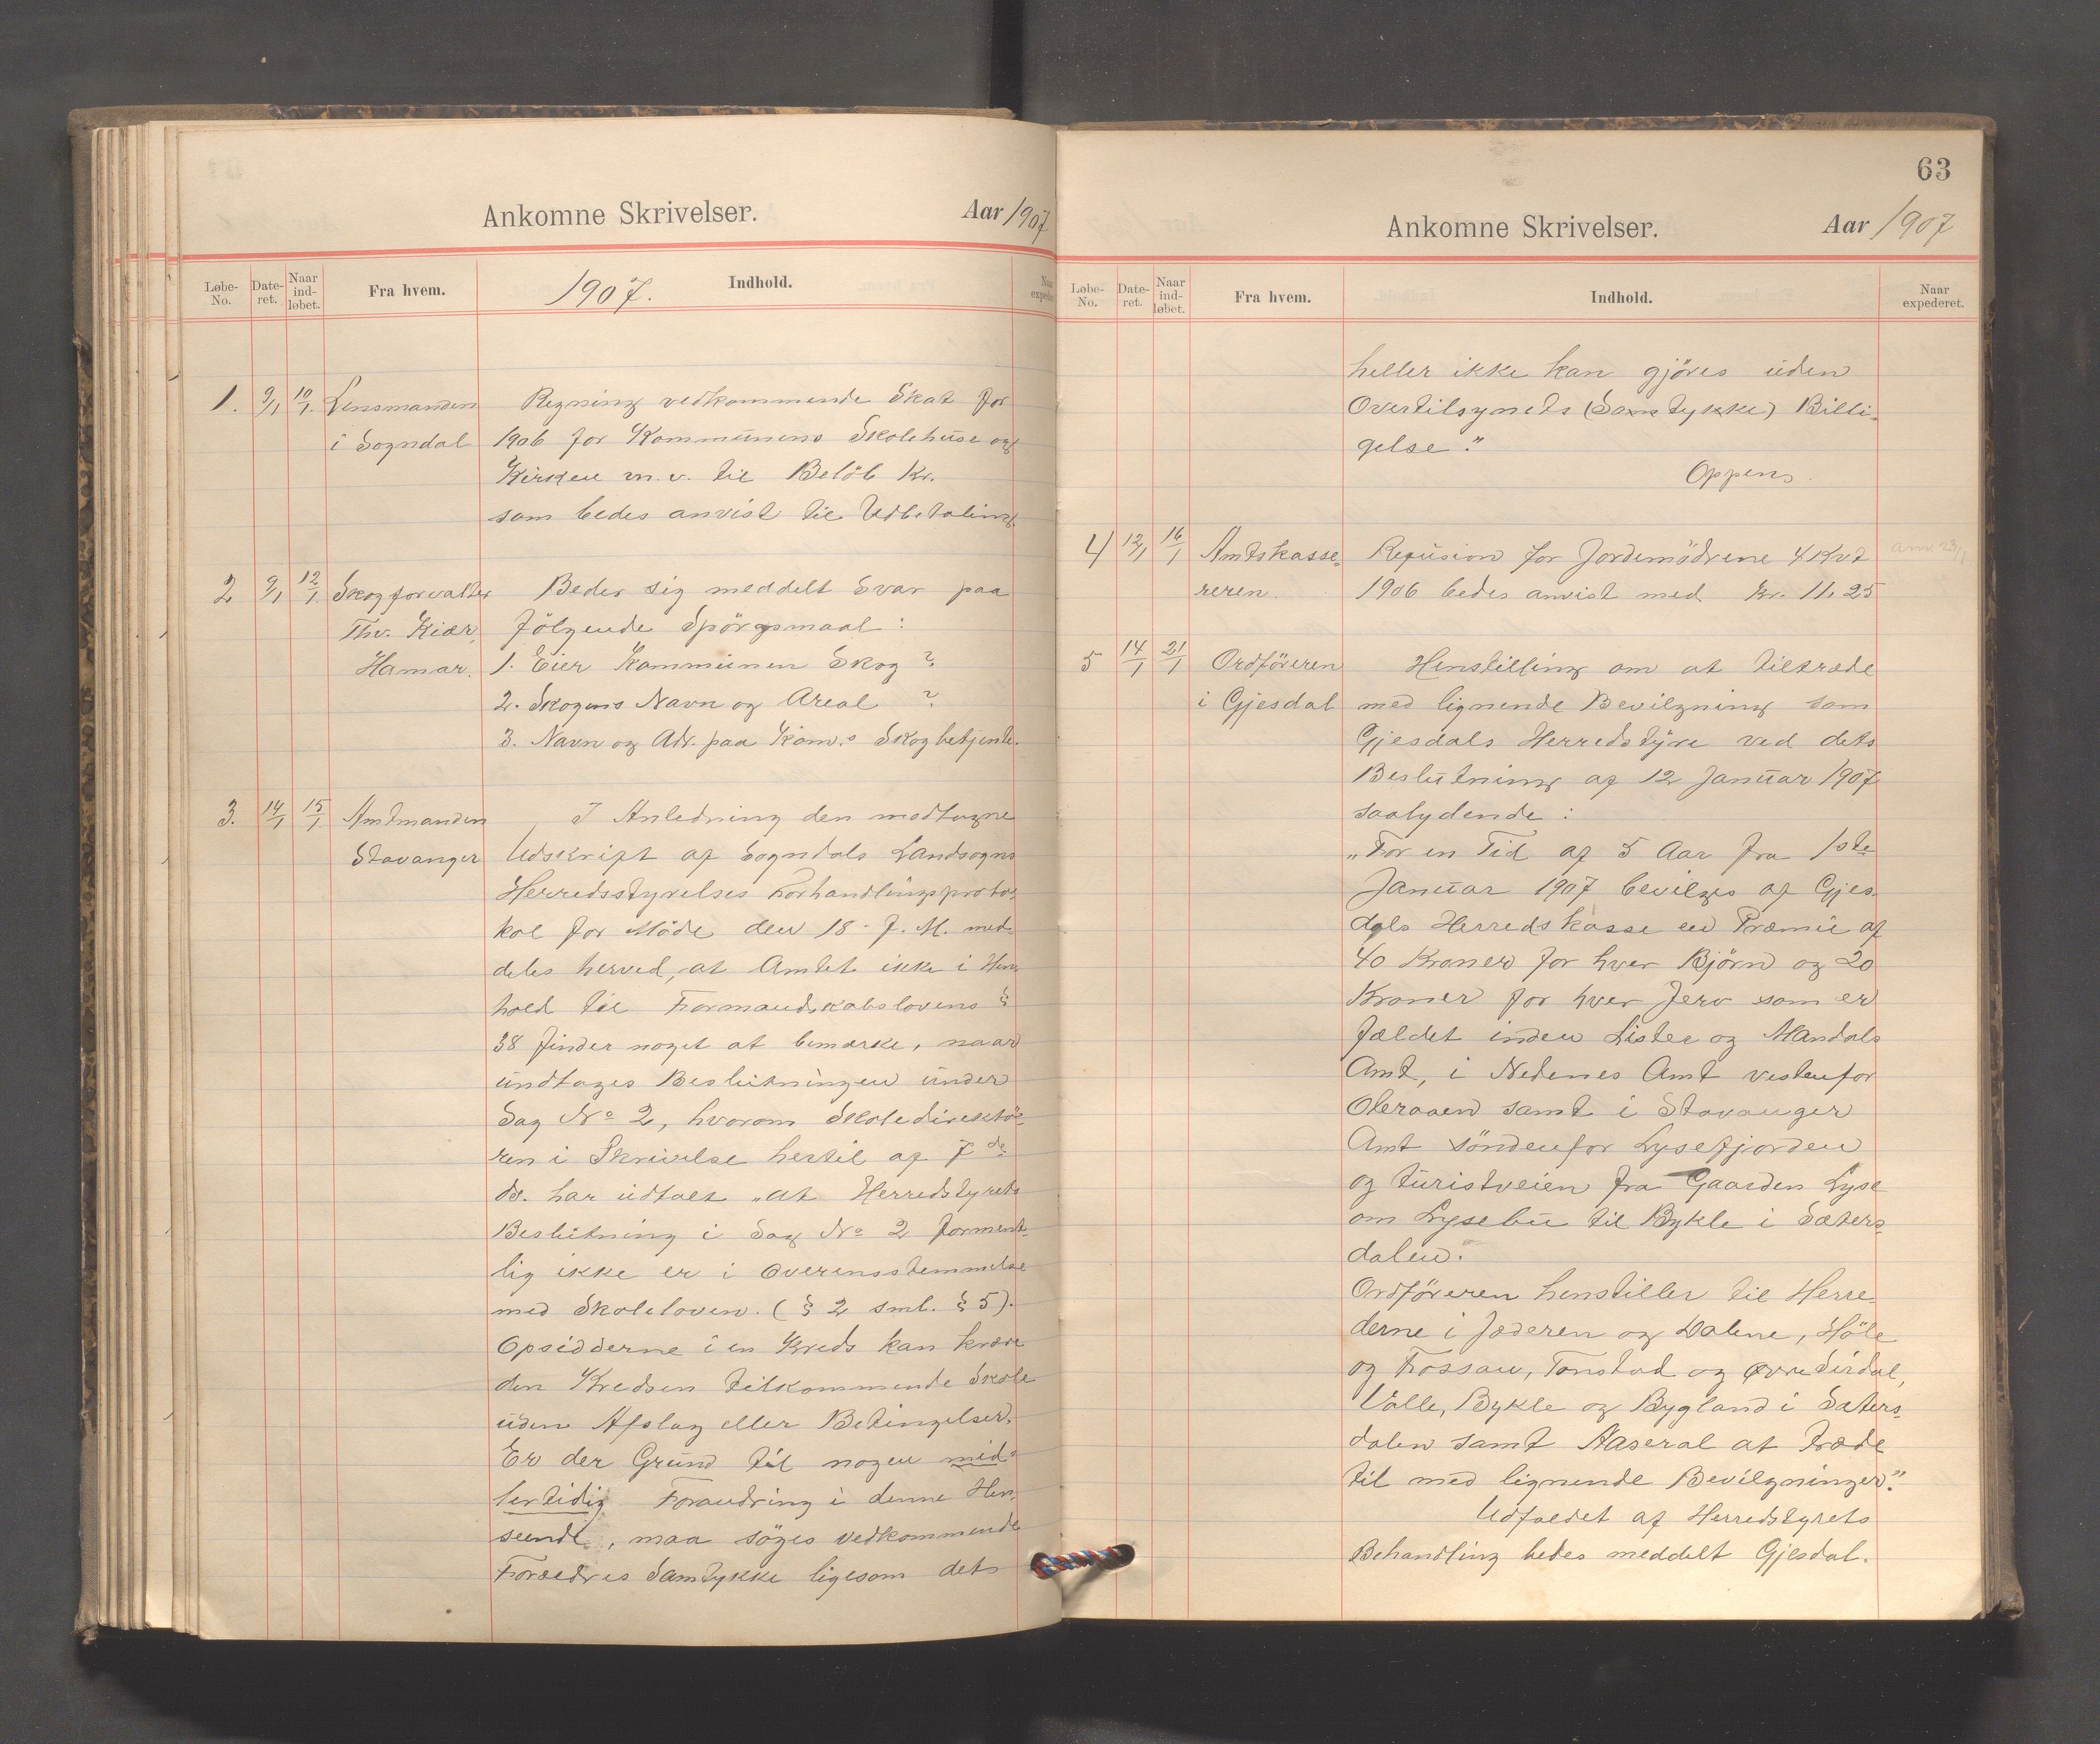 Ankomne Skrivelser. Aar 1907
Løbe-No. Date-ret. Naar ind-løbet. Fra hvem. Indhold. 1907.
1. 9/1 10/1. Lensmanden Regning vedkommende Skat for
i Sogndal 1906 for Kommunens Skolehuse og
Kirken m.v. til Beløb Kr.
som bedes anvist til Udbetaling
2 9/1 12/1. Skogforvalter Beder sig meddelt Svar paa
Thv. Kiær, følgende Spörgsmaal:
Hamar. 1. Eier Kommunen Skog?
2. Skogens Navn og Areal?
3. Navn og Adr. paa Kom.s Skogbetjente.
3. 14/1 15/1. Amtmanden I Anledning den modtagne
Stavanger Udskrift af Sogndals Landsogns
Herredsstyrelses Forhandlingsproto-
kol for Möde den 18 f. M. med-
deles herved, at Amtet ikke i Hen-
hold til Formandskabslovens §
38 finder noget at bemærke, naar
undtages Beslutningen under
Sag No 2, hvorom Skoledirektö-
ren i Skrivelse hertil af 7de
ds. har udtalt "at Herredstyrets
Beslutning i Sag No 2 forment-
lig ikke er i Overensstemmelse
med Skoleloven. (§ 2 sml. § 5).
Opsidderne i en Kreds kan kræve
den Kredsen tilkommende Skole
uden Afslag eller Betingelser.
Er der Grund til nogen mid-
lertidig Forandring i denne Hen-
seende, maa söges vedkommende
Forældres Samtykke ligesom dets
63
Ankomne Skrivelser. Aar 1907
Løbe-No. Date-ret. Naar ind-løbet. Fra hvem. Indhold. Naar expederet.
heller ikke kan gjöres uden
Overtilsynets (Samtykke) Billi-
gelse."
Oppens.
4 12/1 16/1 Amtskasse- Refusion for Jordemödrene 4 Kvt anv 23/1
reren. 1906 bedes anvist med Kr. 11,25
5 14/1 21/1 Ordföreren Henstilling om at tiltræde
i Gjesdal med lignende Bevilgning som
Gjesdals Herredstyre ved dets
Beslutning af 12 Januar 1907
saalydende:
"For en Tid af 5 Aar fra 1ste
Januar 1907 bevilges af Gjes-
dals Herredskasse en Præmie af
40 Kroner for hver Björn og 20
Kroner for hver Jerv som er
fældet inden Lister og Mandals
Amt, i Nedenes Amt vestenfor
Oteraaen samt i Stavanger
Amt söndenfor Lysefjorden
og turistveien fra Gaarden Lyse
om Lysebu til Bykle i Sæters-
dalen."
Ordföreren henstiller til Herre-
derne i Jæderen og Dalene, Höle
og Fossan, Tonstad og Övre Sirdal,
Valle, Bykle og Bygland i Sæters-
dalen samt Aaseral at træde
til med lignende Bevilgninger."
Udfaldet af Herredstyrets
Behandling bedes meddelt Gjesdal.